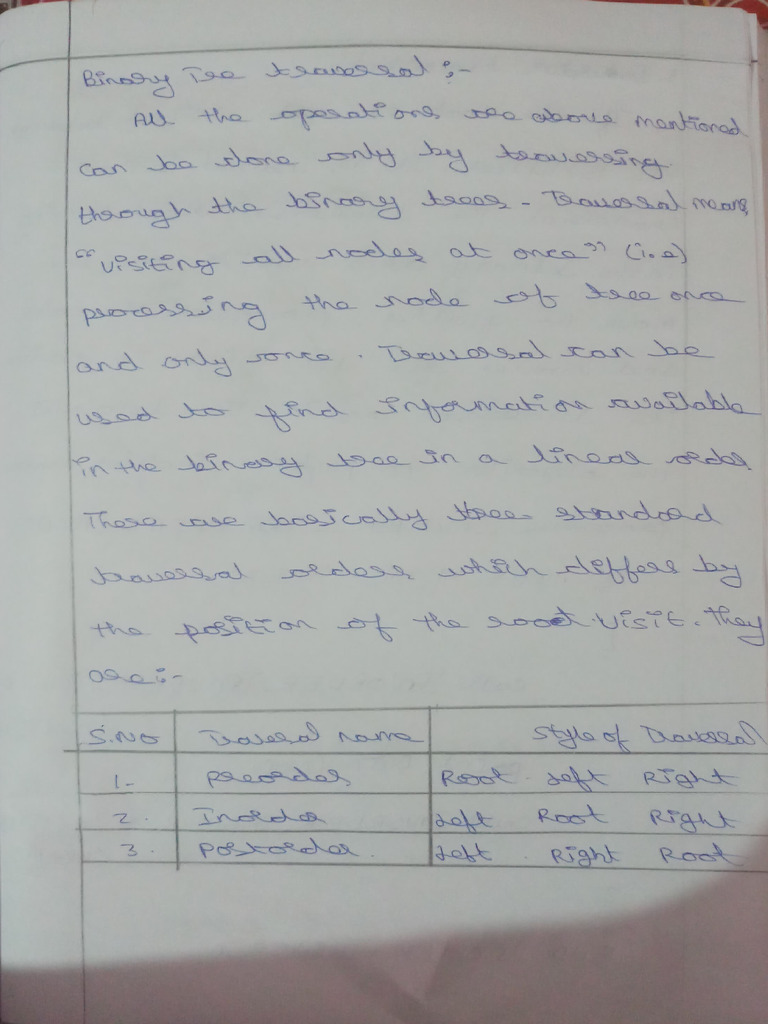 Binary Tre traversal :-
All the operations see above mentioned
can be done only by traversing
through the binary trees - Traversal means,
"visiting all nodes at once" (i.e)
processing the node of tree once
and only once. Traversal can be
used to find information available
in the binary tree in a linear order
There are basically three standard
traversal orders which differs by
the position of the root visit. They
are:-
S.NO Traversal name Style of Traversal
1- Preorder Root Left Right
2. Inorder Left Root Right
3. Postorder. Left Right Root